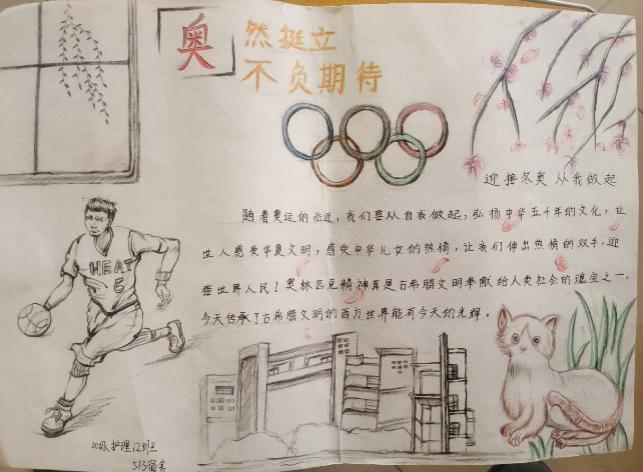 奥 然挺立
不负期待
迎接冬奥 从我做起
随着奥运的临近，我们要从自我做起，弘扬中华五千年的文化，让
世人感受华夏文明，感受中华儿女的热情，让我们伸出热情的双手，迎
接世界人民！奥林匹克精神真是古希腊文明奉献给人类社会的瑰宝之一，
今天传承了古希腊文明的西方世界能有今天的光辉。
HEAT
6
20级护理12班
513宿舍